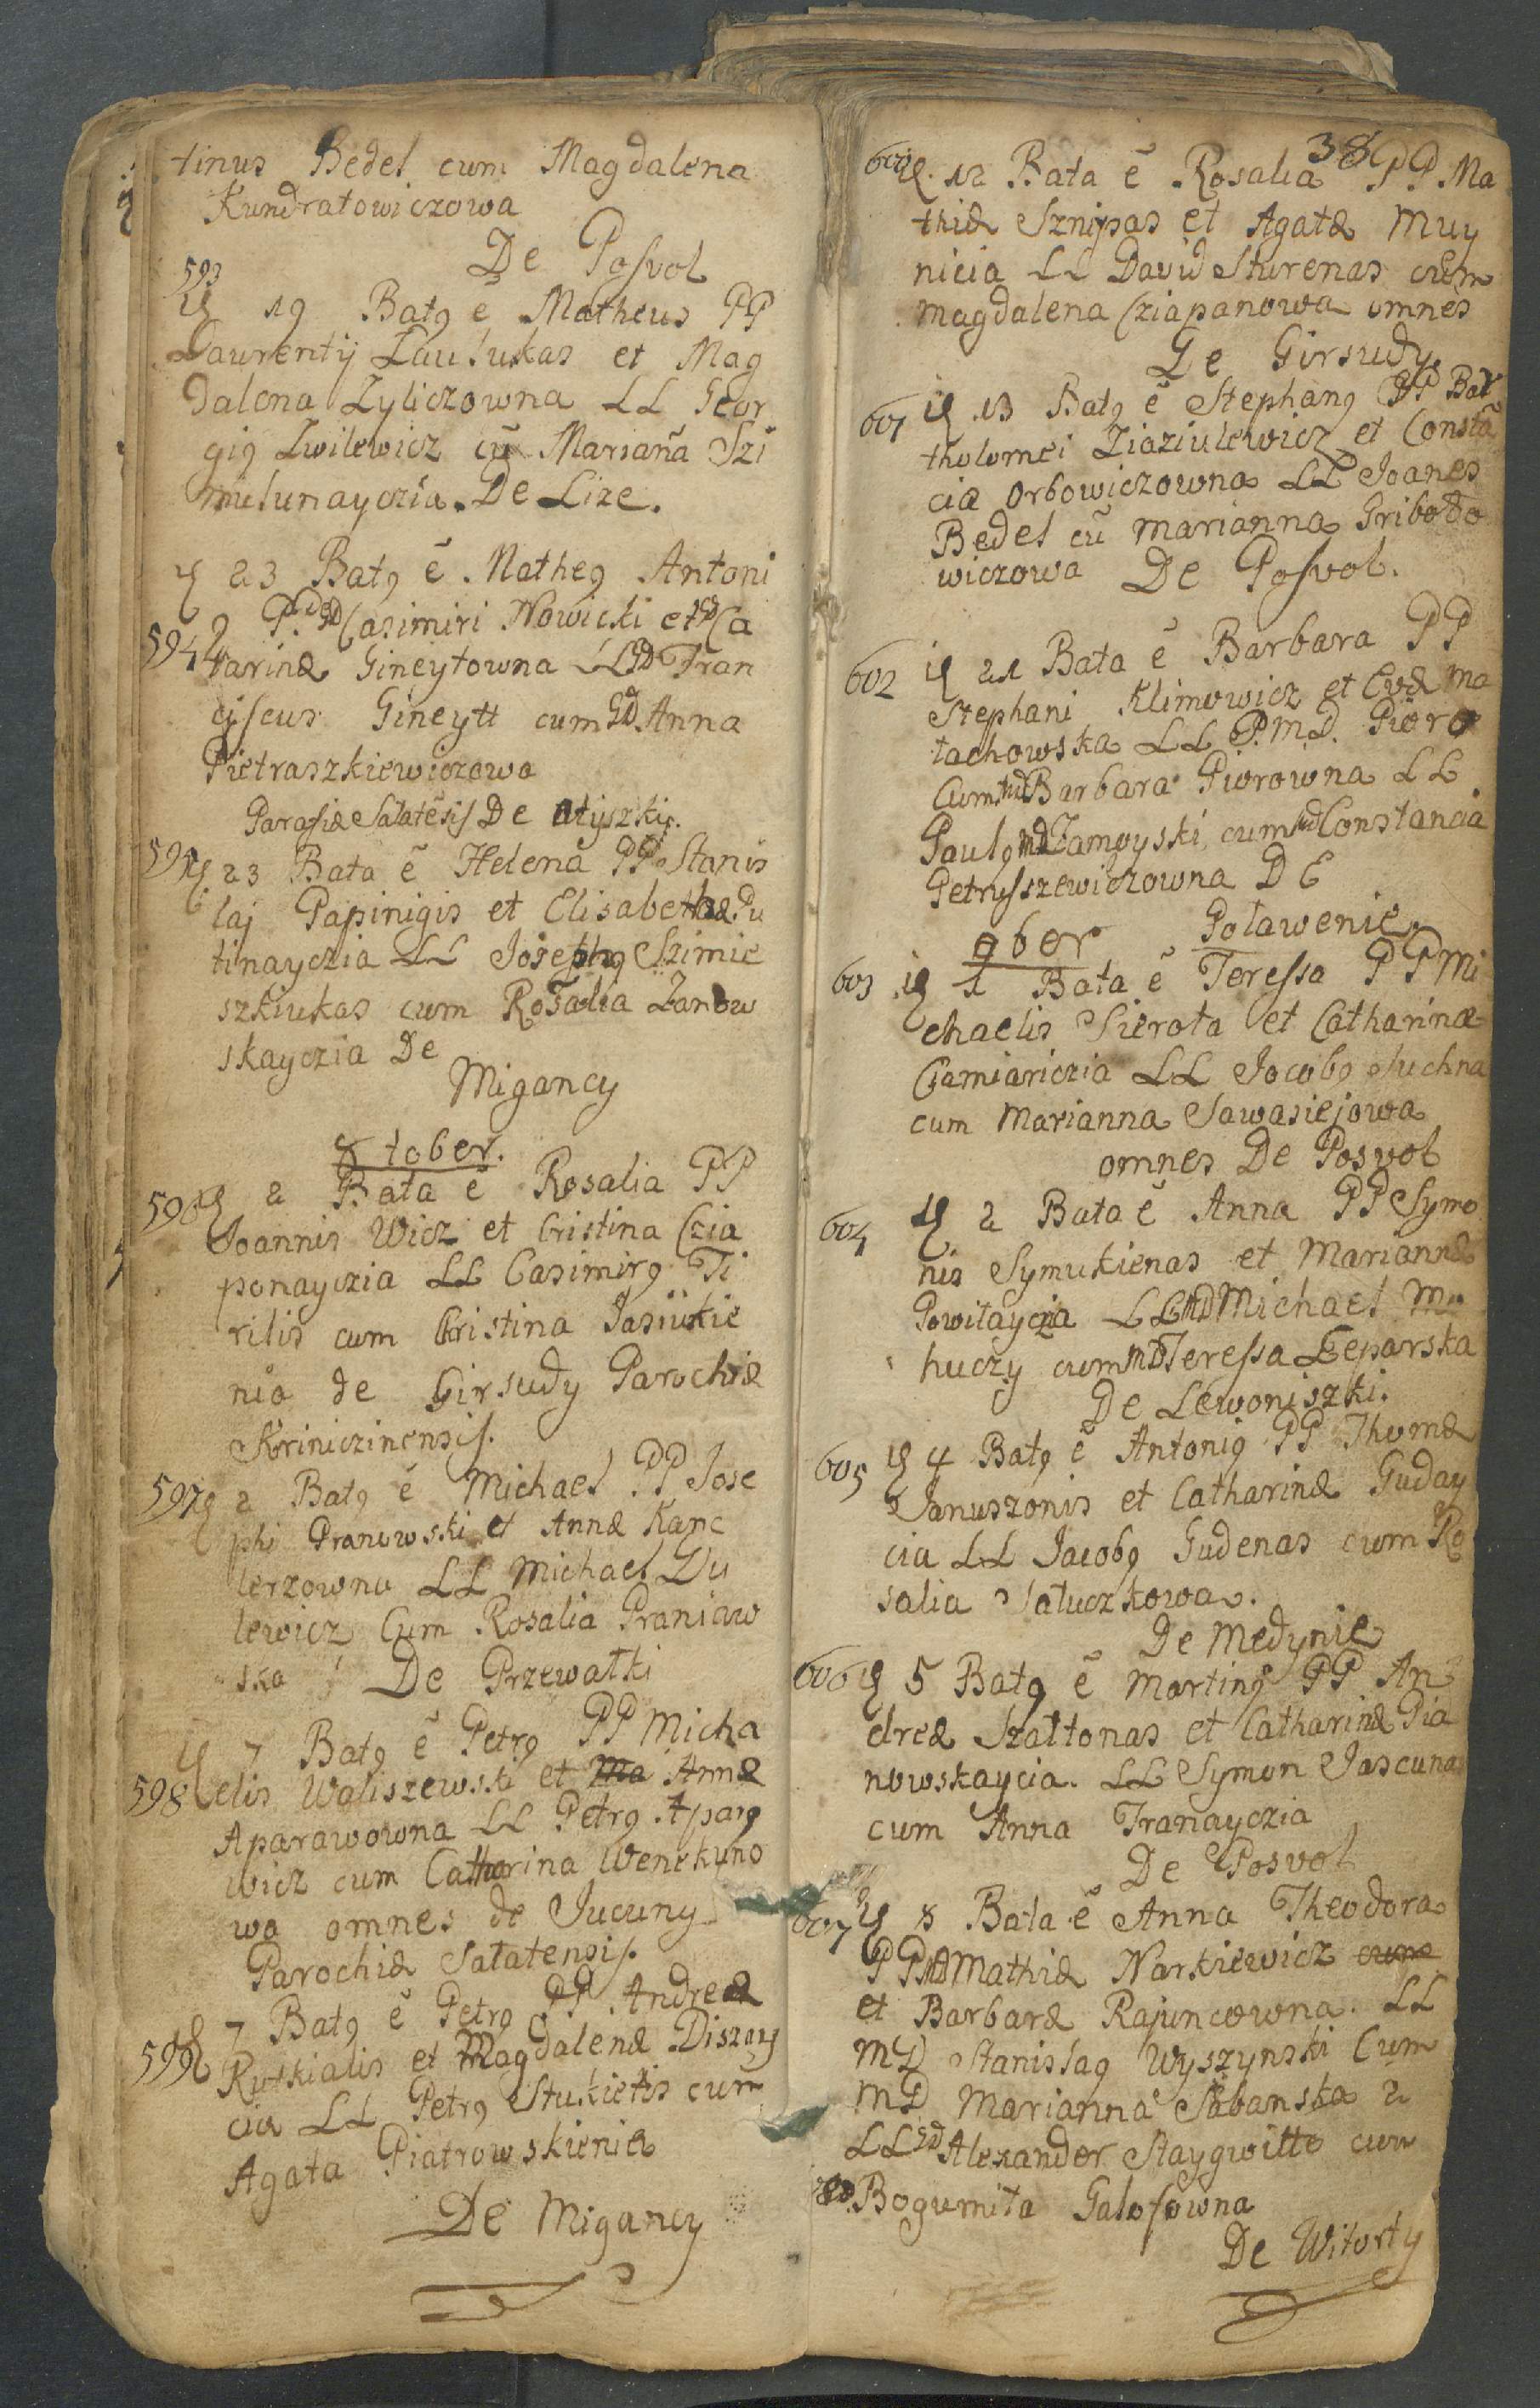 tinus Bedel cum Magdalena
Kundratowiczowa
De Posvol
593
19 Batꝯ ē Matheus PP
Laurentij Laulukas et Mag
dalena Zyliczowna LL Geor
giꝯ Zwilewicz cū Mariañа Szi
mulunayczia. De Lize.
23 Batꝯ ē Matheꝯ Antoni
594 ꝯ PP GD Casimiri Nowicki et GD Ca
tarinæ Gineytowna LL GD Fran
ciscus Gineytt cum GD Anna
Pietraszkiewiczowa
Parafiæ Salatēsis De Atyszki.
595 23 Bata ē Helena PP Stanis
laj Papinigis et Elisabethæ Pu
tinayczia LL Josephꝯ Szimie
szkiukas cum Rosalia Zanow
skayczia De
Migancy
8tober.
596 2 Bata ē Rosalia PP
Joannis Wicz et Cristina Czia
ponayczia LL Casimirꝯ Ti
rilis cum Cristina Jasiukie
nia de Girsudy Parochiæ
Kriniczinensis.
597 2 Batꝯ ē Michael PP Jose
phi Pranowski et Annæ Kanc
lerzowna LL Michael Du
lewicz Cum Rosalia Praniaw
ska De Przewałki
7 Batꝯ ē Petrꝯ PP Micha
598 elis Waliszewski et Ma Annæ
Aparawowna LL Petrꝯ Aparo
wicz cum Catharina Wenckuno
wa omnes de Jucuny
Parochiæ Salatensis.
7 Batꝯ ē Petrꝯ PP Andreæ
599 Ruskialis et Magdalenæ Diszay
cia LL Petrꝯ Stukietis cum
Agata Piatrowskienia
De Migancy
38
600 12 Bata ē Rosalia PP Ma
thiæ Sznipas et Agatæ Muy
nicia LL David Sturenas cum
Magdalena Cziapanowa omnes
De Girsudy.
601 13 Batꝯ ē Stephanꝯ PP Bar
tholomei Ziaziulewicz et Constā
ciæ Orbowiczowna LL Joanes
Bedel cū Marianna Gribodo
wiczowa De Posvol.
602 21 Bata ē Barbara PP
Stephani Klimowicz et Evæ Ma
lachowska LL P.M.D. Pioro
Cum MD Barbara Piorowna LL
Paulꝯ MD Zamoyski cum MD Constancia
Petrusszewiczowna DE
9ber Poławenie.
603 1 Bata ē Teressa PP Mi
chaelis Sierota et Catharinæ
Czamiariczia LL Jacobꝯ Juchna
cum Marianna Sawasiejowa
omnes De Posvol
604 2 Bata ē Anna PP Symo
nis Symukienas et Mariannæ
Powilayczia LL MD Michael Mo
huczy cum MD Teressa Leparska
De Lewoniszki.
605 4 Batꝯ ē Antoniꝯ PP Thomæ
Januszonis et Catharinæ Guday
cia LL Jacobꝯ Gudenas cum Ro
salia Sałuczkowa.
De Medynie
606 5 Batꝯ ē Martinꝯ PP An
dreæ Szaltonas et Catharinæ Pia
nowskaycia. LL Symon Jascunas
cum Anna Tranayczia
De Posvol
607 8 Bata ē Anna Theodora
PP MD Mathiæ Narkiewicz cum
et Barbaræ Rajuncowna. LL
MD Stanislaꝯ Wyszynski Cum
MD Marianna Sabanska 2
LL GD Alexander Staygwitto cum
GD Bogumita Galosowna
De Witorty